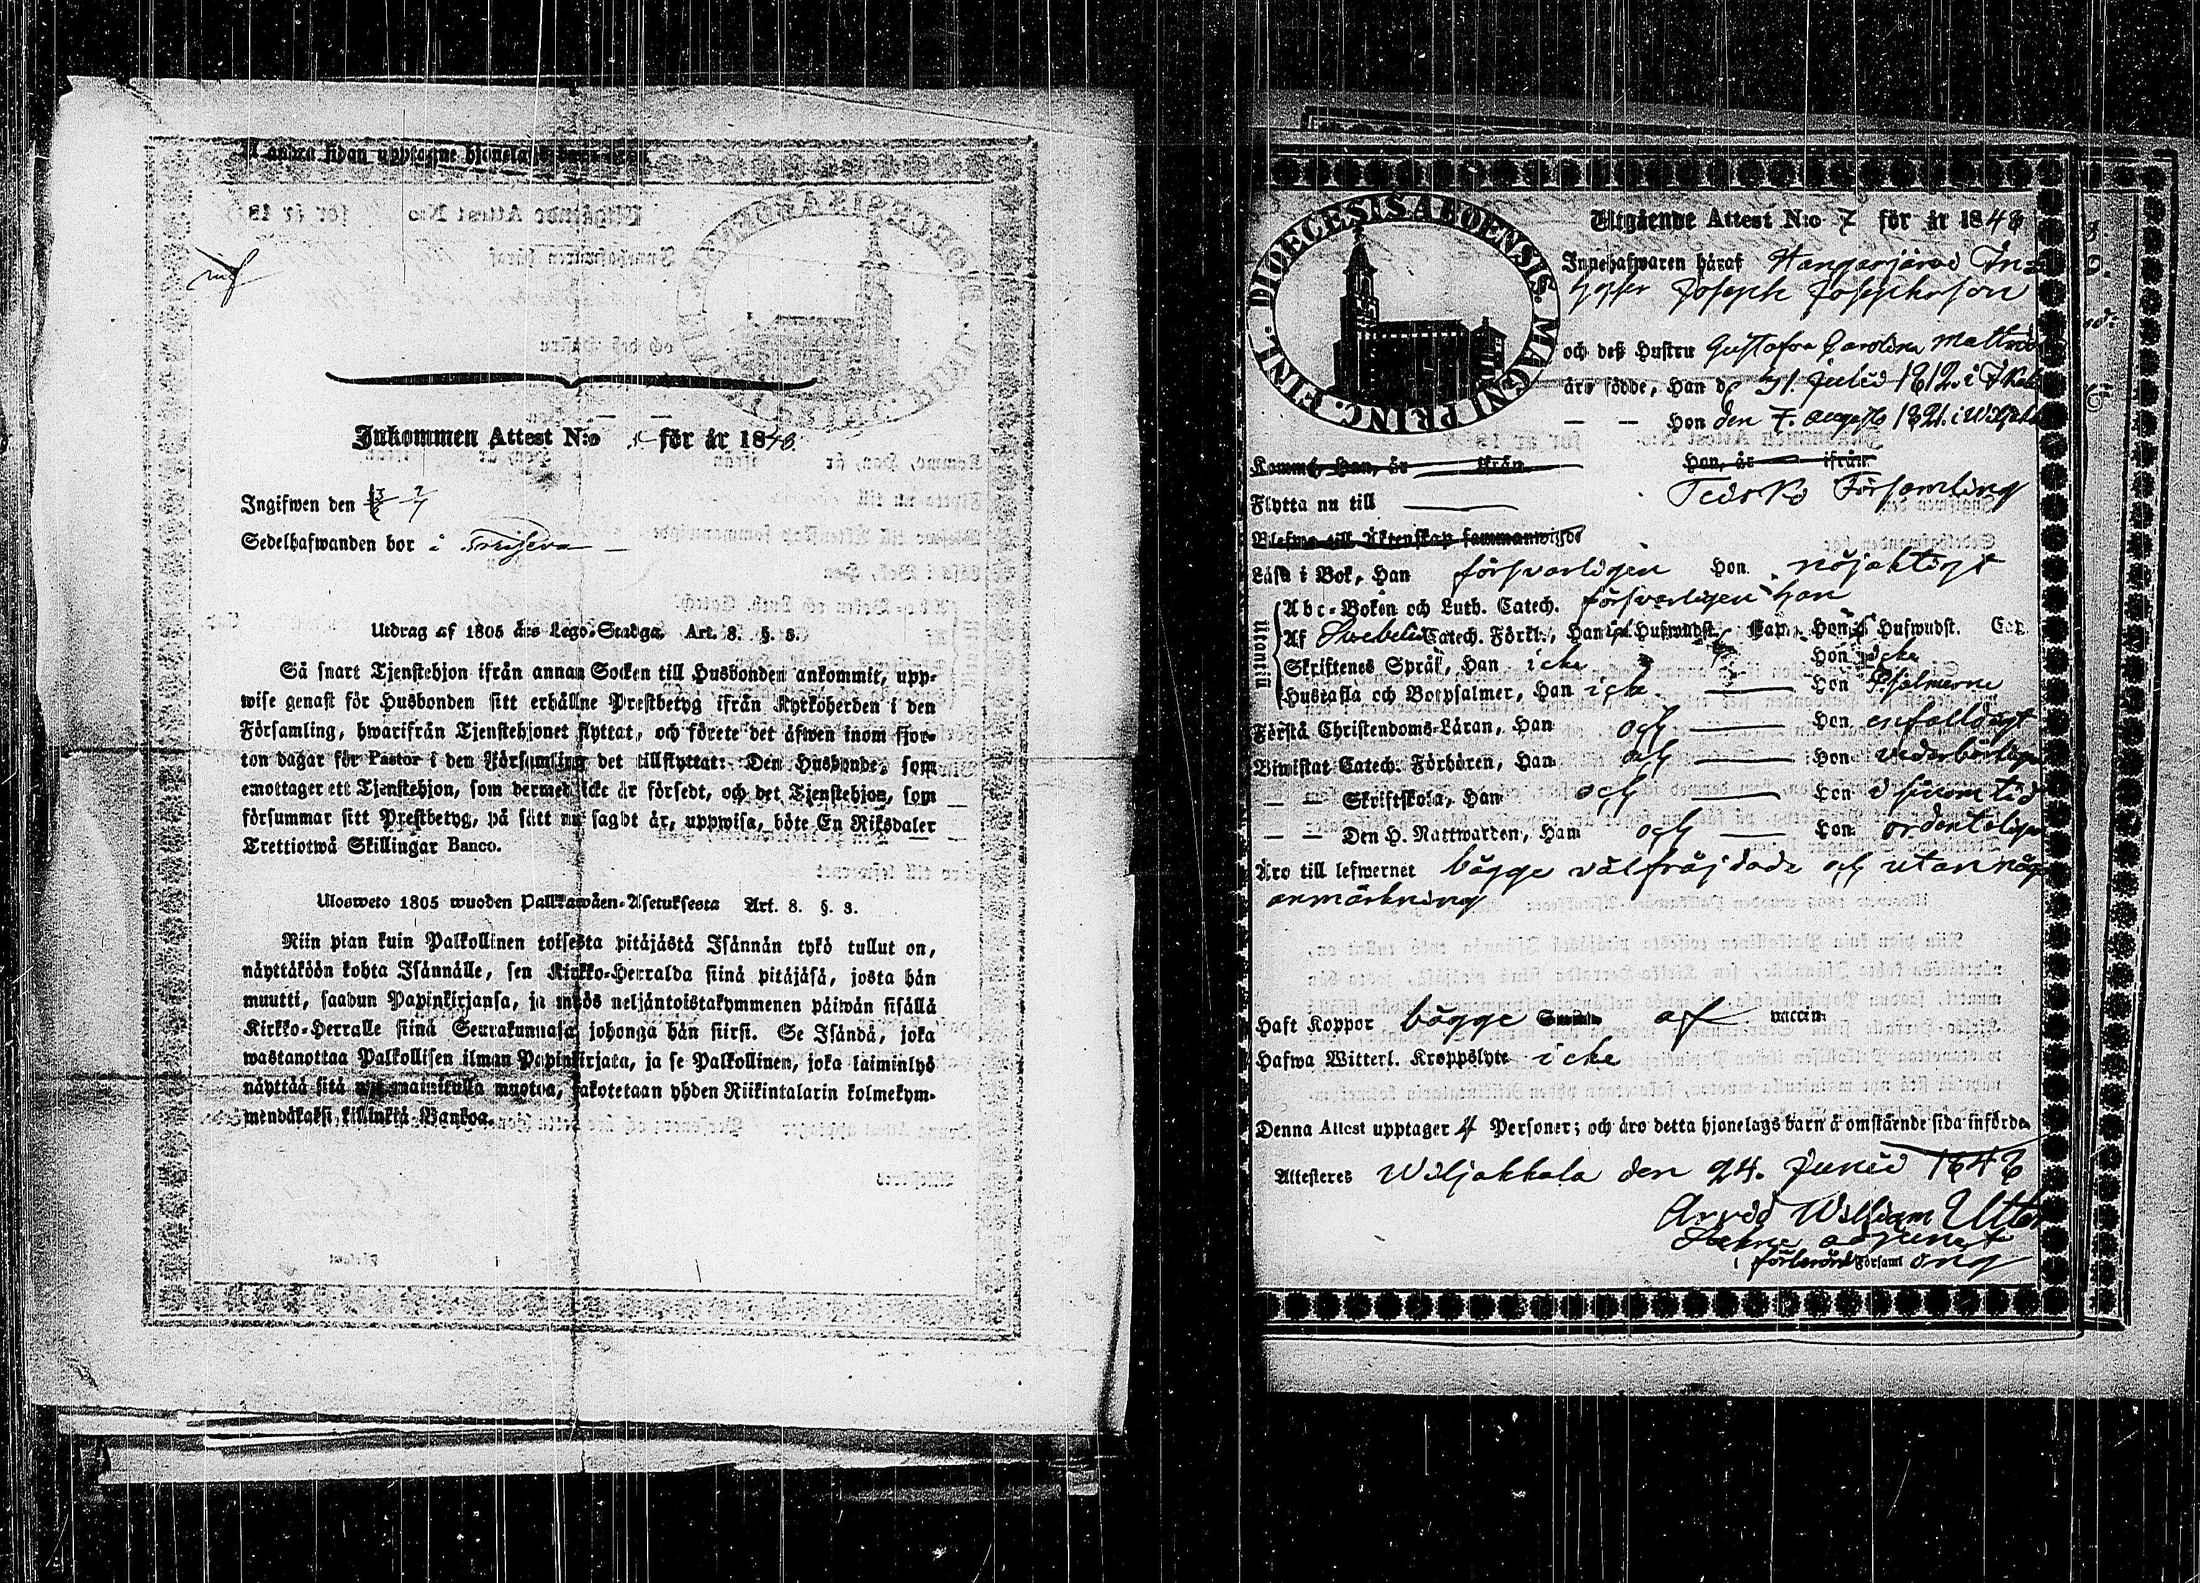 Å andra sidan upptagne hjonelags barn äro:
Inkommen Attest N:o för år 1848.
Ingifwen den
Sedelhafwanden bor i
Utdrag af 1805 års Lego-Stadga. Art. 8. §. 3.
Så snart Tjenstehjon ifrån annan Socken till Husbonden ankommit, upp-
wise genast för Husbonden sitt erhållne Prestbetyg ifrån Kyrkoherden i den
Församling, hwarifrån Tjenstehjonet flyttat, och förete det äfwen inom fjor-
ton dagar för Pastor i den Församling det tillflyttat: Den Husbonde, som
emottager ett Tjenstehjon, som dermed icke är försedt, och det Tjenstehjon, som
försummar sitt Prestbetyg, på sätt nu sagdt är, uppwisa, böte En Riksdaler
Trettiotwå Skillingar Banco.
Ulosweto 1805 wuoden Palkkawäen-Asetuksesta Art. 8. §. 3.
Niin pian kuin Palkollinen toisesta pitäjästä Isännän tykö tullut on,
näyttäköön kohta Isännälle, sen Kirkko-Herralda siinä pitäjäsä, josta hän
muutti, saadun Papinkirjansa, ja myös neljäntoistakymmenen päiwän sisällä
Kirkko-Herralle siinä Seurakunnasa johonga hän siirsi. Se Isändä, joka
wastanottaa Palkollisen ilman Papinkirjata, ja se Palkollinen, joka laiminlyö
näyttää sitä nyt mainitulla muotoa, sakotetaan yhden Riikintalarin kolmekym-
mendäkaksi killinkiä Bankoa.
DIOECESIS ABOENSIS. MAGNI PRINC. FINL.
Utgående Attest N:o 7 för år 1848
Innehafwaren häraf Hangasjärwi In-
hyses Joseph Josephsson
och deß Hustru Gustafva Carolina Mattsdr
äro födde, Han d 31 Julii 1812 i
— — Hon den 7. Augusti 1821. i
Komme, Han, år ifrån Hon, år ifrån
Flytta nu till Teisko Församling
Blefwo till Äktenskap sammanwigde
Läsa i Bok, Han försvarligen Hon nöjaktigt
Utantill
Abc-Boken och Luth. Catech. försvarligen
Af Svebelii Catech. Förkl., Han Huswudst. Cap. Hon Huswudst. Cap.
Skriftenes Språk, Han icke Hon icke
Hustafla och Botpsalmer, Han icke — Hon Psalmerne
Förstå Christendoms-Läran, Han och — Hon enfalldigt
Biwistat Catech. Förhören, Han och — Hon vederbörligen
— — Skriftskola, Han och — Hon i sinom tid
— — Den H. Nattwarden, Han och — Hon ordenteligen
Äro till lefwernet bägge välfräjdade och utan
anmärkning
Haft Koppor bägge af vaccin.
Hafwa Witterl. Kroppslyte icke
Denna Attest upptager 4 Personer; och äro detta hjonelags barn å omstående sida införde.
Attesteres Wiljakkala den 24. Junii 1848
Arvid William
adjunct
i förberörd Församl ing